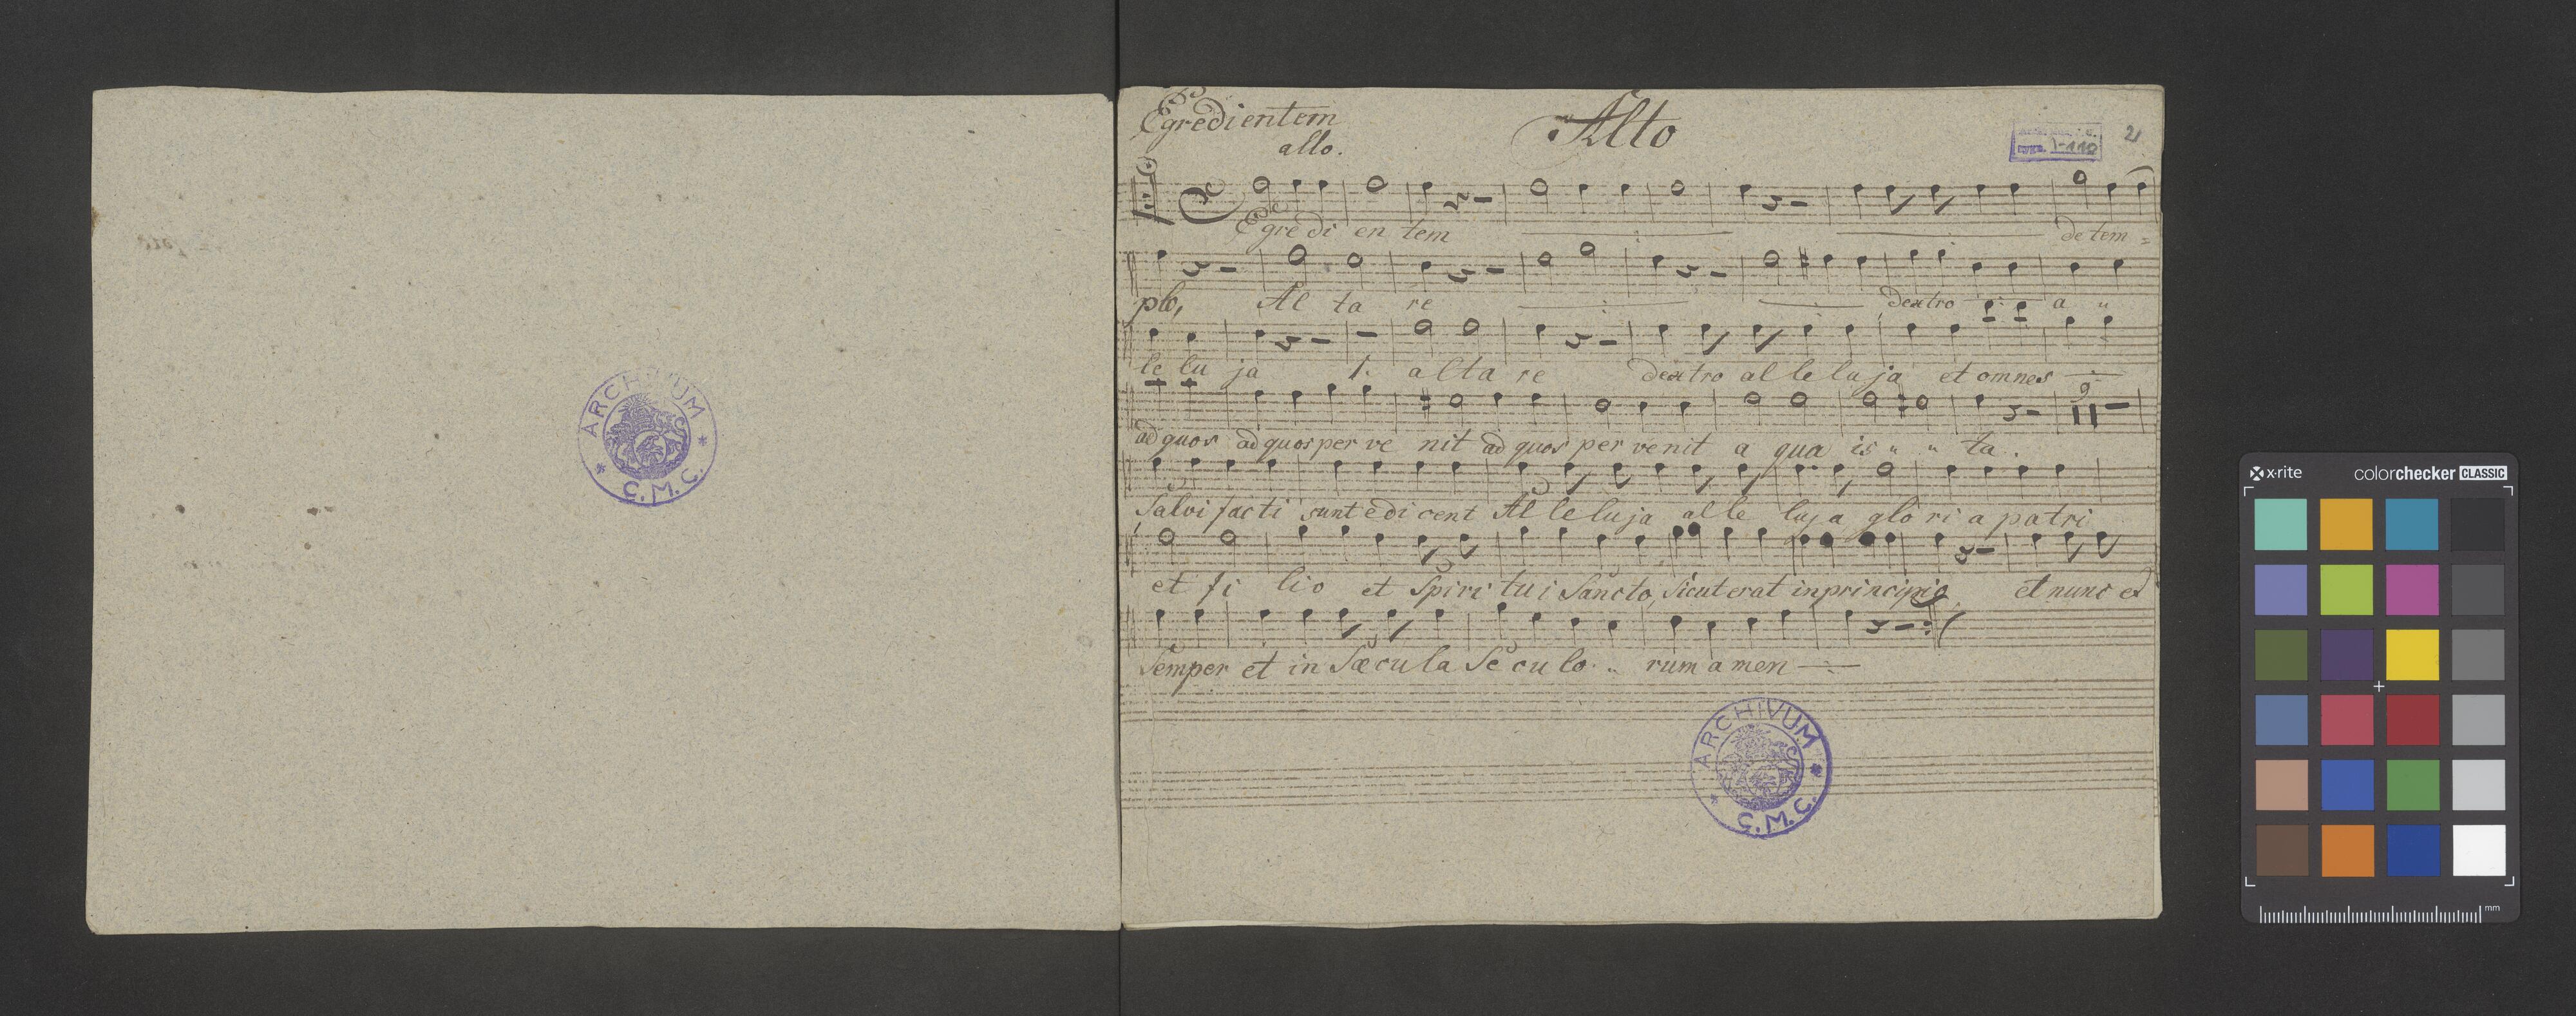 ARCHIVUM
C.M.C.
Egredientem
Alto
allo.
I-110
2
Egre di en tem de tem=
plo, Al ta re dextro a "
le lu ja 1. al ta re dextro al le lu ja et omnes
9
ad quos ad quos per ve nit ad quos per ve nit a qua is " " ta.
Salvi facti sunt edi cent Al le lu ja al le lu ja glo ri a patri
et fi lio et Spiri tu i Sancto, Sicut erat in principio et nunc et
Semper et in Sæcu la Se cu lo " rum a men
ARCHIVUM
C.M.C.
x-rite
colorchecker CLASSIC
mm